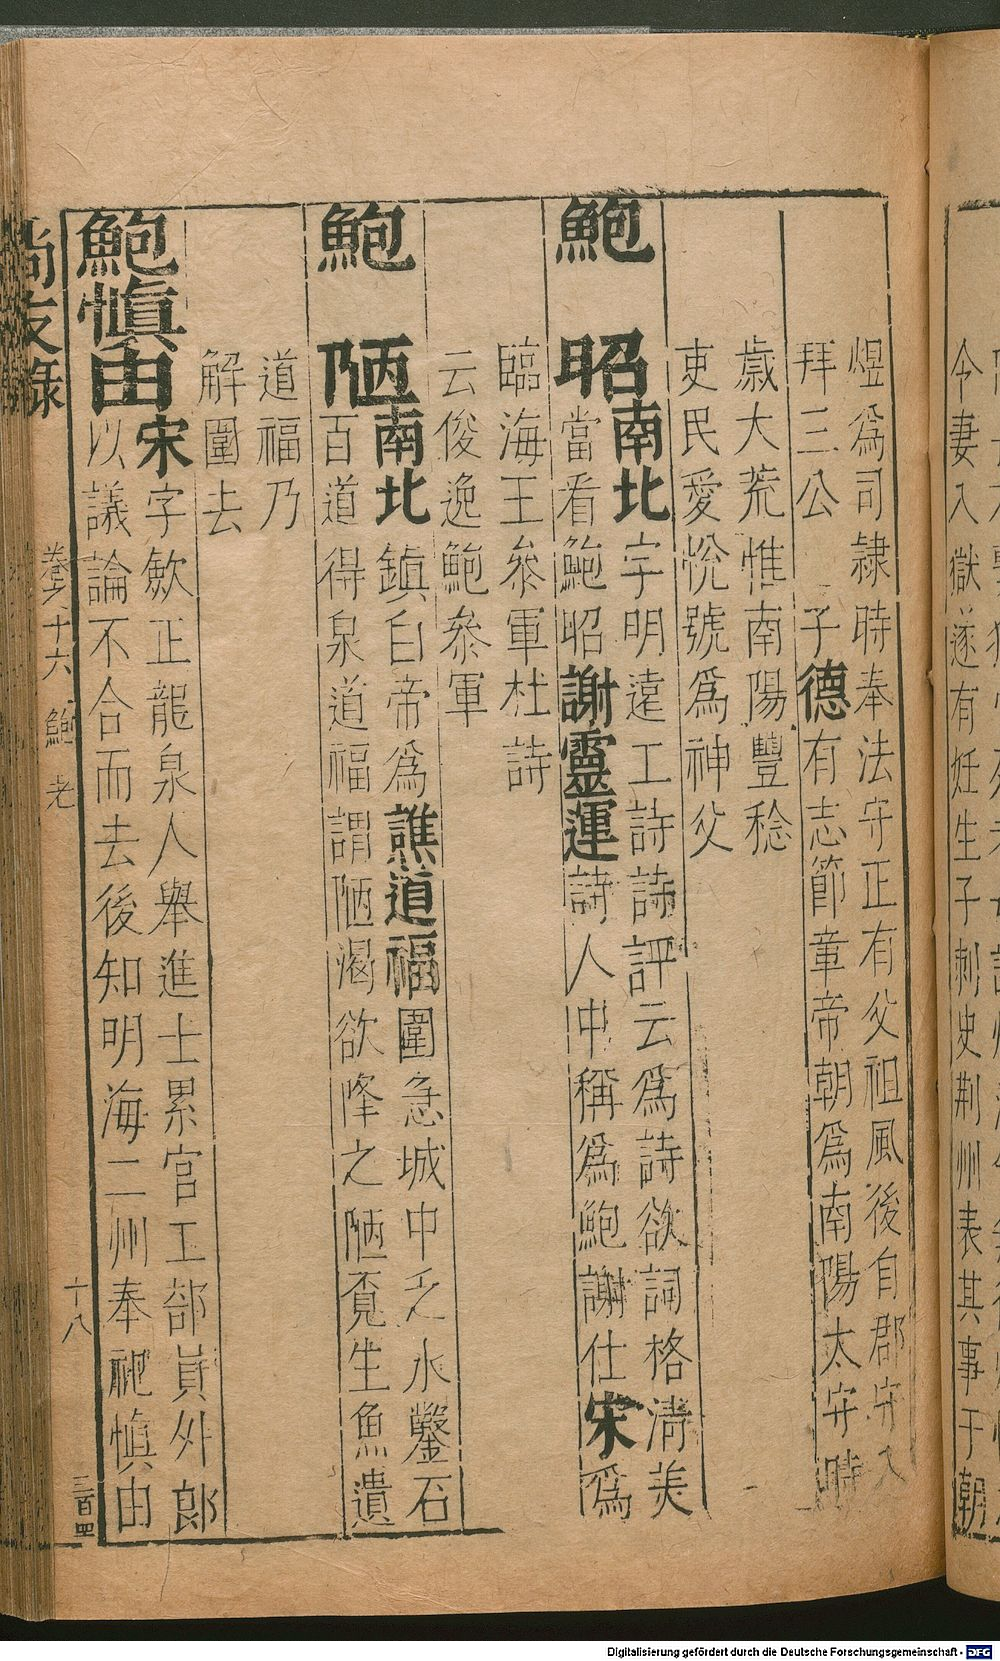 今妻入獄遂有妊生子刺史荆州表其事于朝
煜爲司隷時奉法守正有父祖風後自郡守入
拜三公　子德有志節章帝朝爲南陽太守時
歲大荒惟南陽豐稔
吏民愛悅號爲神父
鮑　昭南北字明遠工詩詩評云爲詩欲詞格淸美
當看鮑昭謝靈運詩人中稱爲鮑謝仕宋爲
臨海王叅軍杜詩
云俊逸鮑叅軍
鮑　陋南北鎮白帝爲譙道福圍急城中乏水鑿石
百道得泉道福謂陋渴欲降之陋覔生魚遺
道福乃
解圍去
鮑慎由宋字欽正龍泉人舉進士累官工部員外郎
以議論不合而去後知明海二州奉祀慎由
尚友錄
卷之十六　鮑　老
十八
三百四
Digitalisierung gefördert durch die Deutsche Forschungsgemeinschaft - DFG